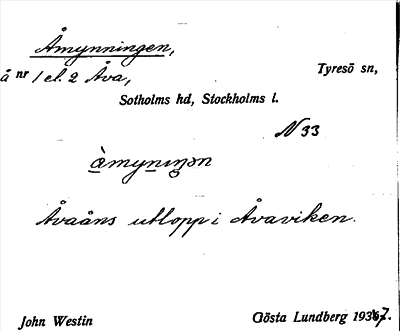 Åmynningen,
å nr 1 el. 2 Åva, Tyresö sn,
Sotholms hd, Stockholms l.
N 33
åmyniŋən
Åvaåns utlopp i Åvaviken.
John Westin Gösta Lundberg 1937.